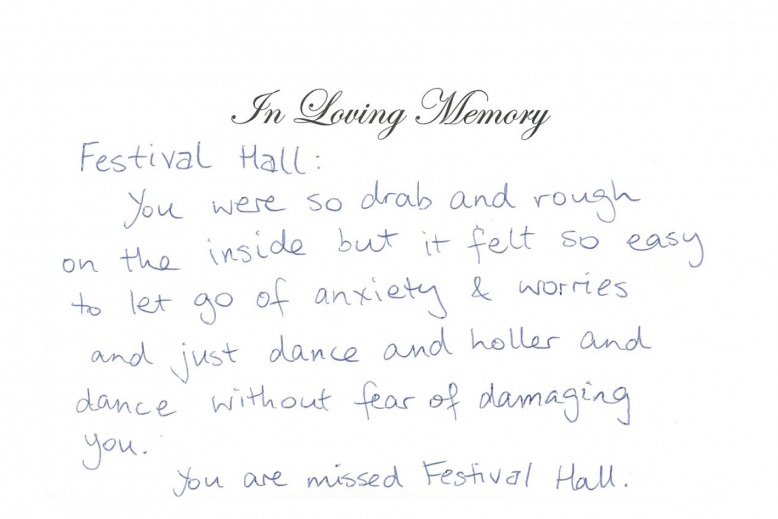 In Loving Memory
Festival Hall:
You were so drab and rough
on the inside but it felt so easy
to let go of anxiety & worries
and just dance and holler and
dance without fear of damaging
you.
You are missed Festival Hall.